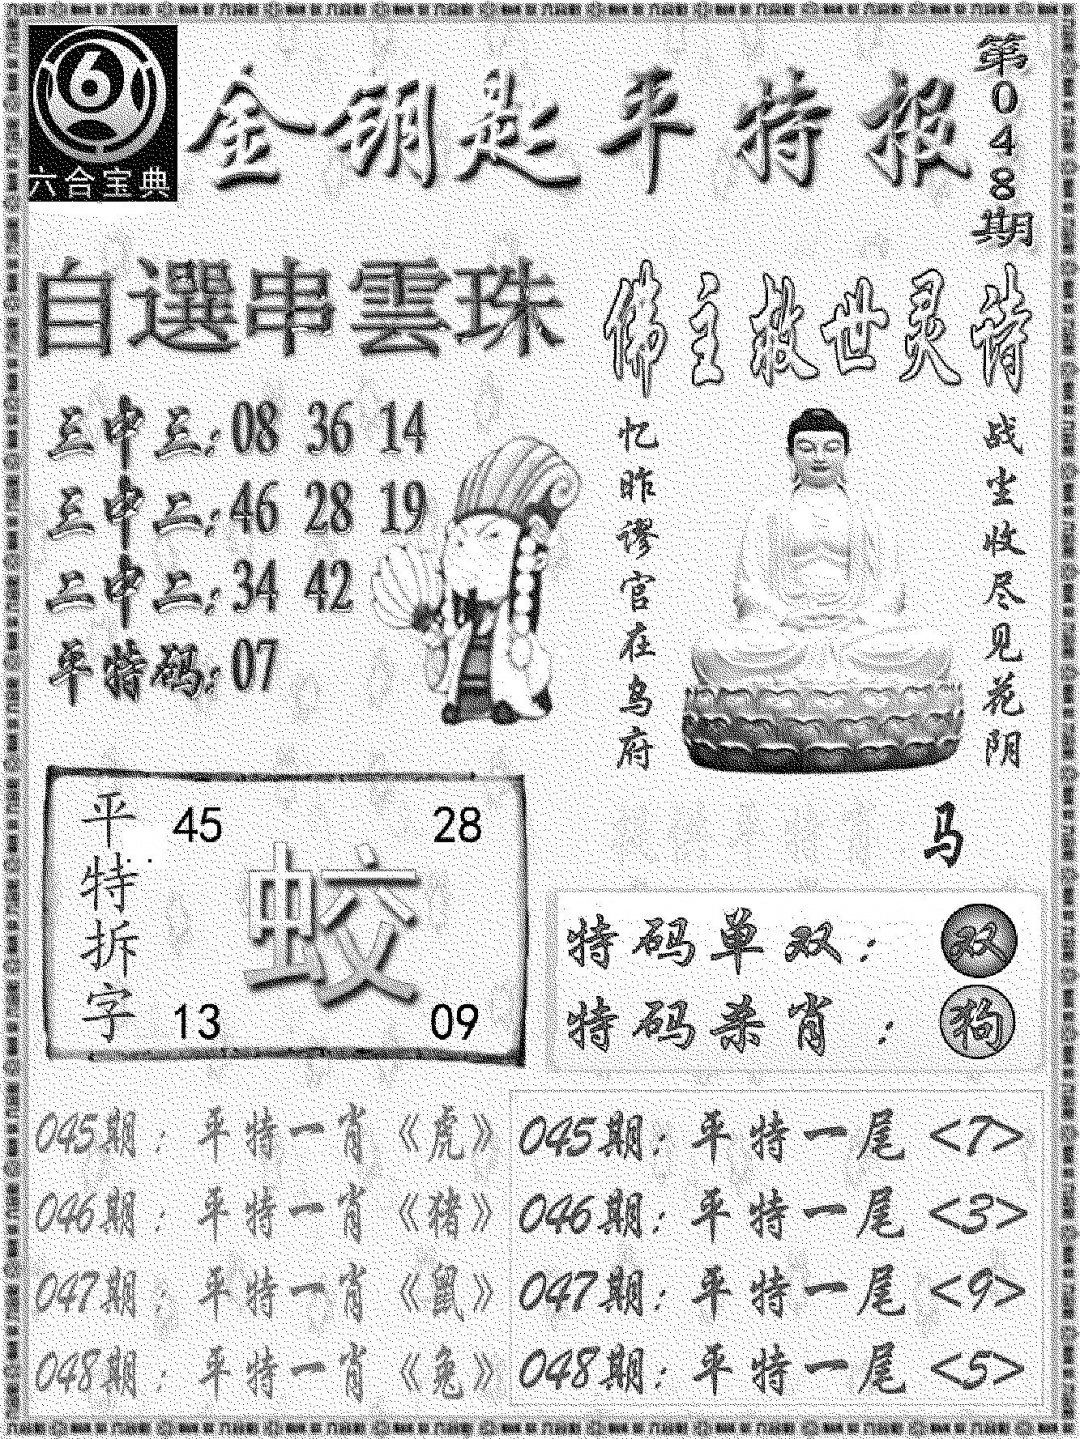 六合宝典
金钥匙平特报
第048期
自選串雲珠
三中三:08 36 14
三中二:46 28 19
二中二:34 42
平特码:07
佛主救世灵诗
战尘收尽见花阴
忆昨谬官在乌府
马
平特拆字
45
28
蛟
13
09
特码单双:双
特码杀肖:狗
045期:平特一肖《虎》
046期:平特一肖《猪》
047期:平特一肖《鼠》
048期:平特一肖《兔》
045期:平特一尾<7>
046期:平特一尾<3>
047期:平特一尾<9>
048期:平特一尾<5>